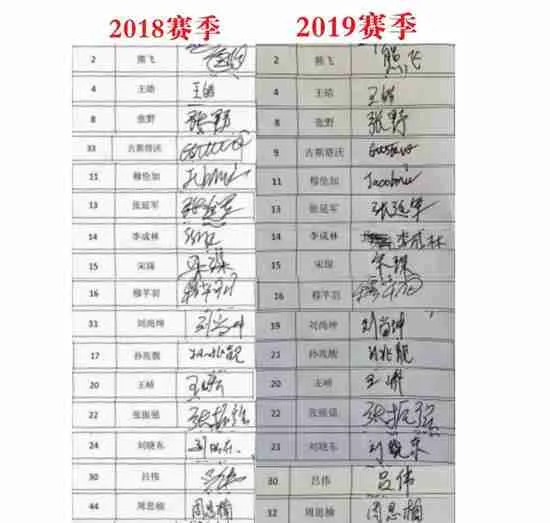 2018赛季 2019赛季
2 熊飞 2 熊飞 熊飞
4 王皓 王皓 4 王皓 王皓
8 张野 张野 8 张野 张野
33 古斯塔沃 9 古斯塔沃 Gustavo
11 穆伦加 11 穆伦加
13 张延军 张延军 13 张延军 张延军
14 李成林 14 李成林 李成林
15 宋琛 宋琛 15 宋琛 宋琛
16 穆芊羽 16 穆芊羽
33 刘尚坤 刘尚坤 19 刘尚坤 刘尚坤
17 孙兆靓 孙兆靓 21 孙兆靓 孙兆靓
20 王峤 王峤 20 王峤
22 张振强 张振强 22 张振强 张振强
24 刘晓东 刘晓东 23 刘晓东 刘晓东
30 吕伟 吕伟 30 吕伟 吕伟
44 周思楠 周思楠 32 周思楠 周思楠